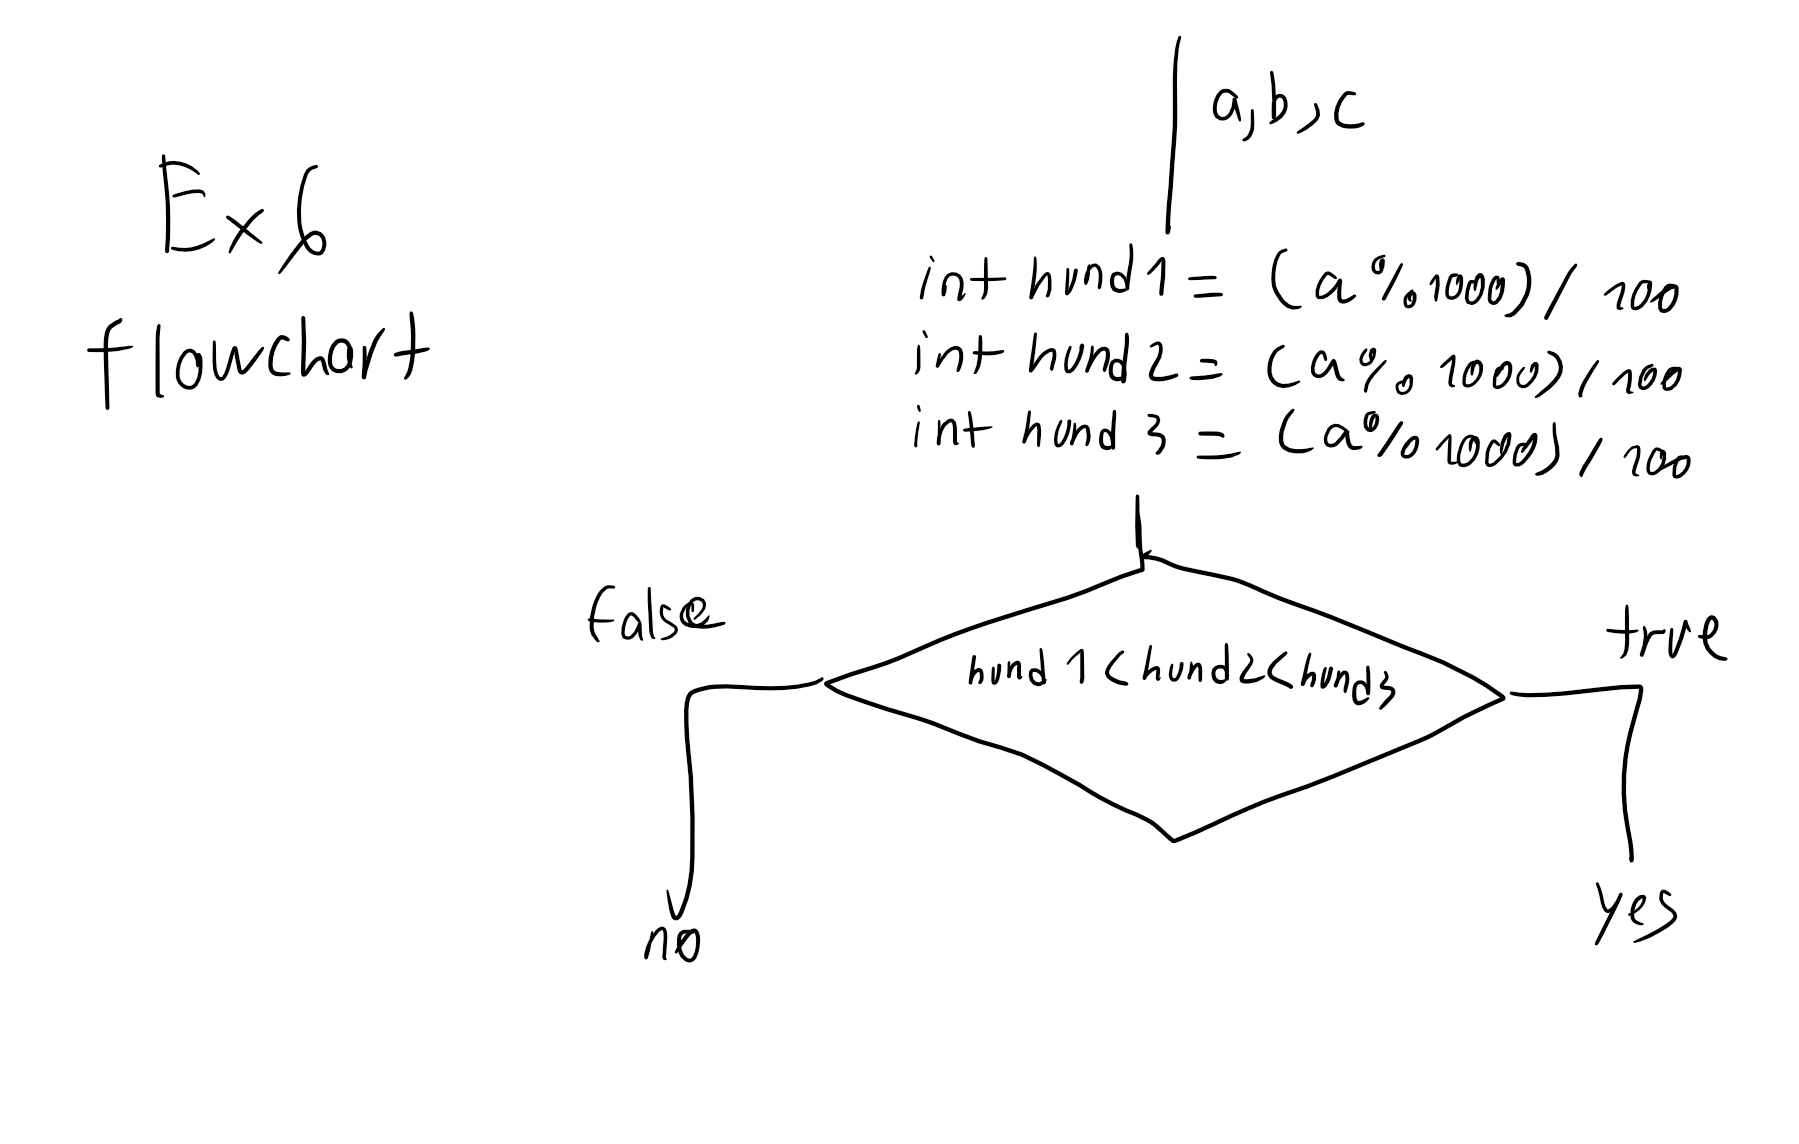 a,b,c
Ex6
flowchart
int hund1 = (a%1000)/100
int hund2 = (a%1000)/100
int hund3 = (a%1000)/100
false
true
hund1<hund2<hund3
no
yes